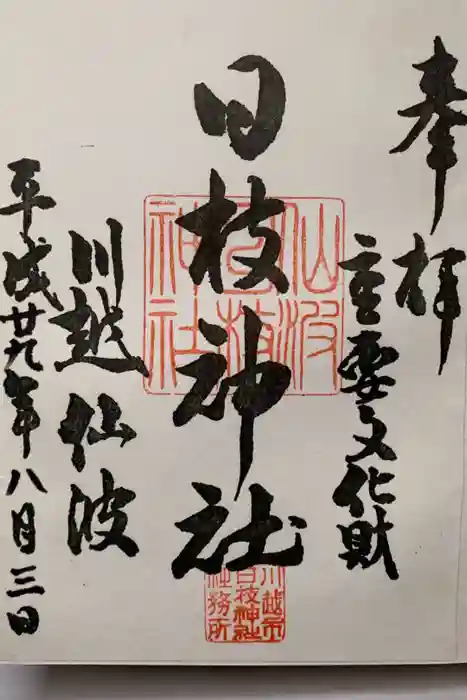 奉拝
重要文化財
日枝神社
川越仙波
平成廿九年八月三日
仙波
日枝
神社
川越市
日枝神社
社務所